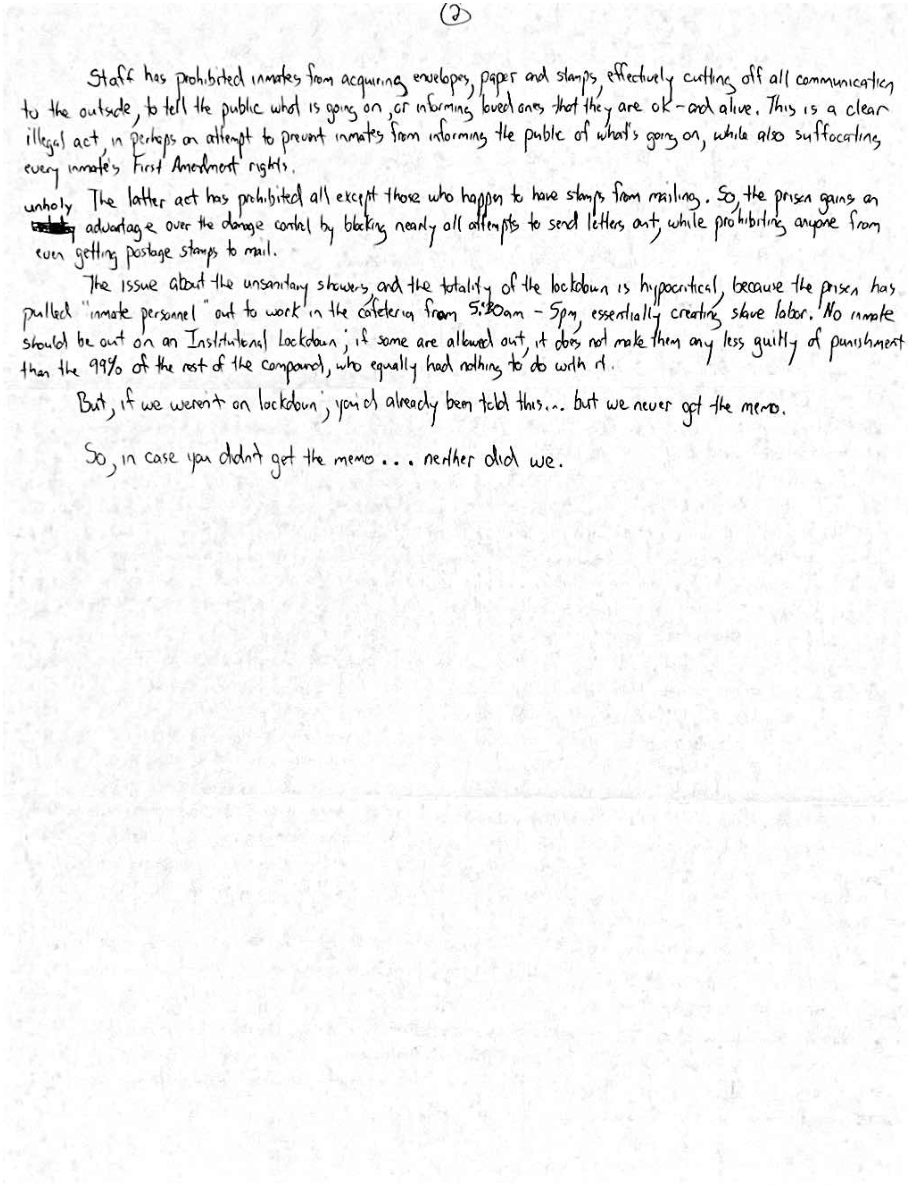 (2)
Staff has prohibited inmates from acquiring envelopes, paper and stamps, effectively cutting off all communication
to the outside, to tell the public what is going on, or informing loved ones that they are ok - and alive. This is a clear
illegal act, in perhaps an attempt to prevent inmates from informing the public of what's going on, while also suffocating
every inmate's First Amendment rights.
The latter act has prohibited all except those who happen to have stamps from mailing. So, the prison gains an
unholy advantage over the damage control by blocking nearly all attempts to send letters out, while prohibiting anyone from
even getting postage stamps to mail.
The issue about the unsanitary showers, and the totality of the lockdown is hypocritical, because the prison has
pulled "inmate personnel" out to work in the cafeteria from am - 5pm, essentially creating slave labor. No inmate
should be out on an Institutional Lockdown; if some are allowed out, it does not make them any less guilty of punishment
than the 99% of the rest of the compound, who equally had nothing to do with it.
But, if we weren't on lockdown, you'd already been told this... but we never got the memo.
So, in case you didn't get the memo... neither did we.